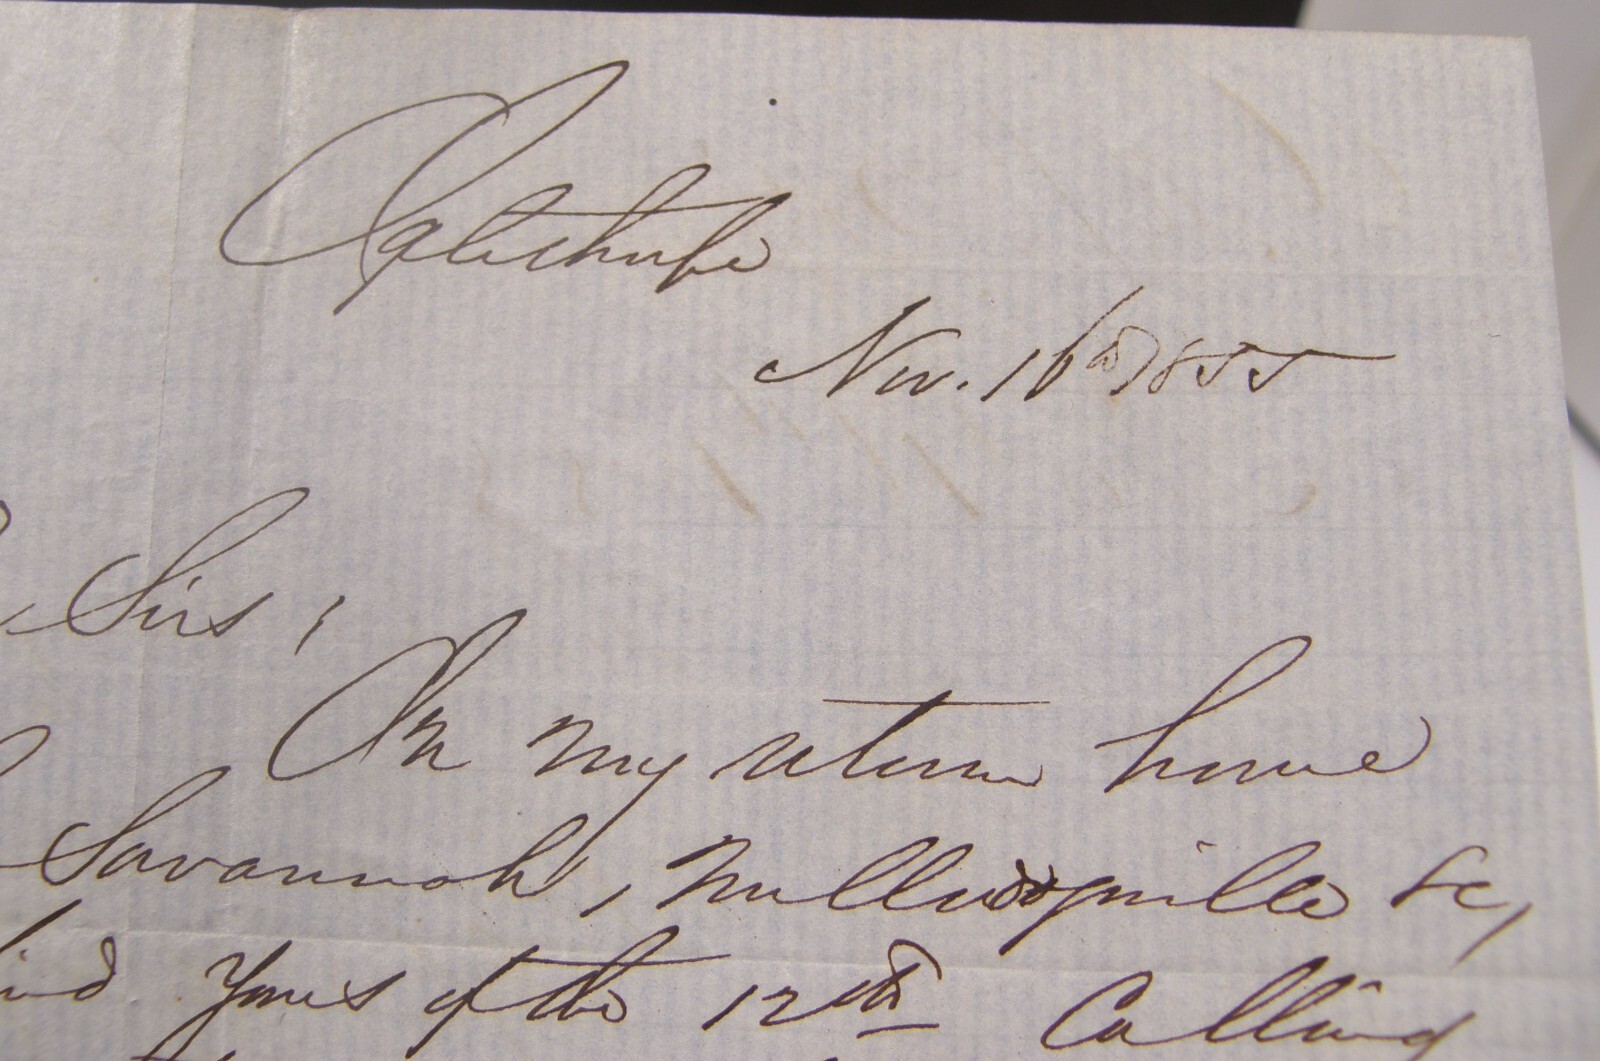 Nov. 16th 1855
Sirs,
On my return home
Savannah, Milledgeville &c,
find yours of the 12th Calling